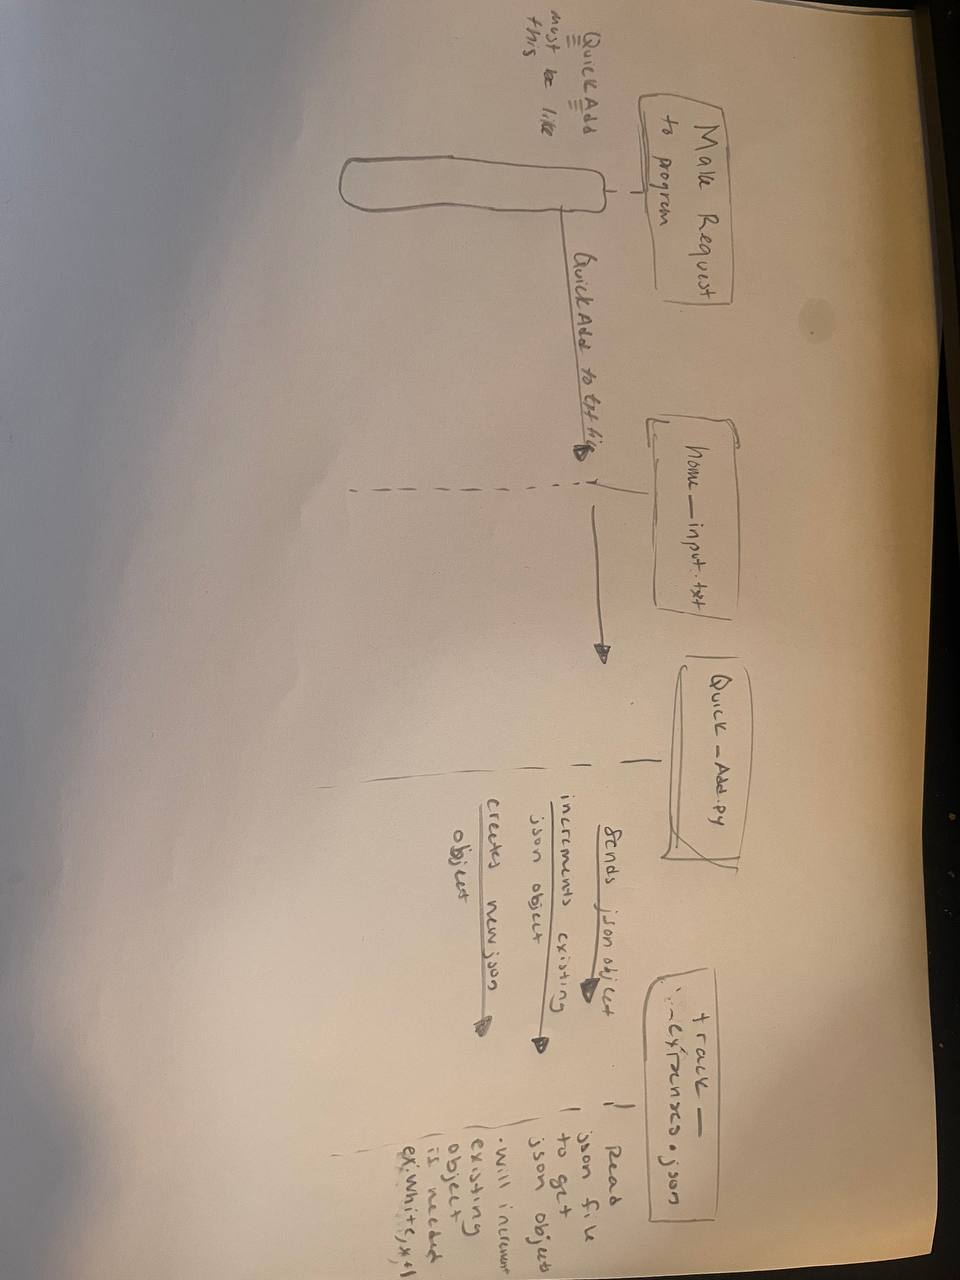 Make Request
to program
home_input.txt
Quick_Add.py
track_
_expenses.json
QuickAdd
must be like
this
QuickAdd to txt file
Sends json object
increments existing
json object
creates new json
object
Read
json file
to get
json object
• will increment
existing
object
is needed
ex: White,